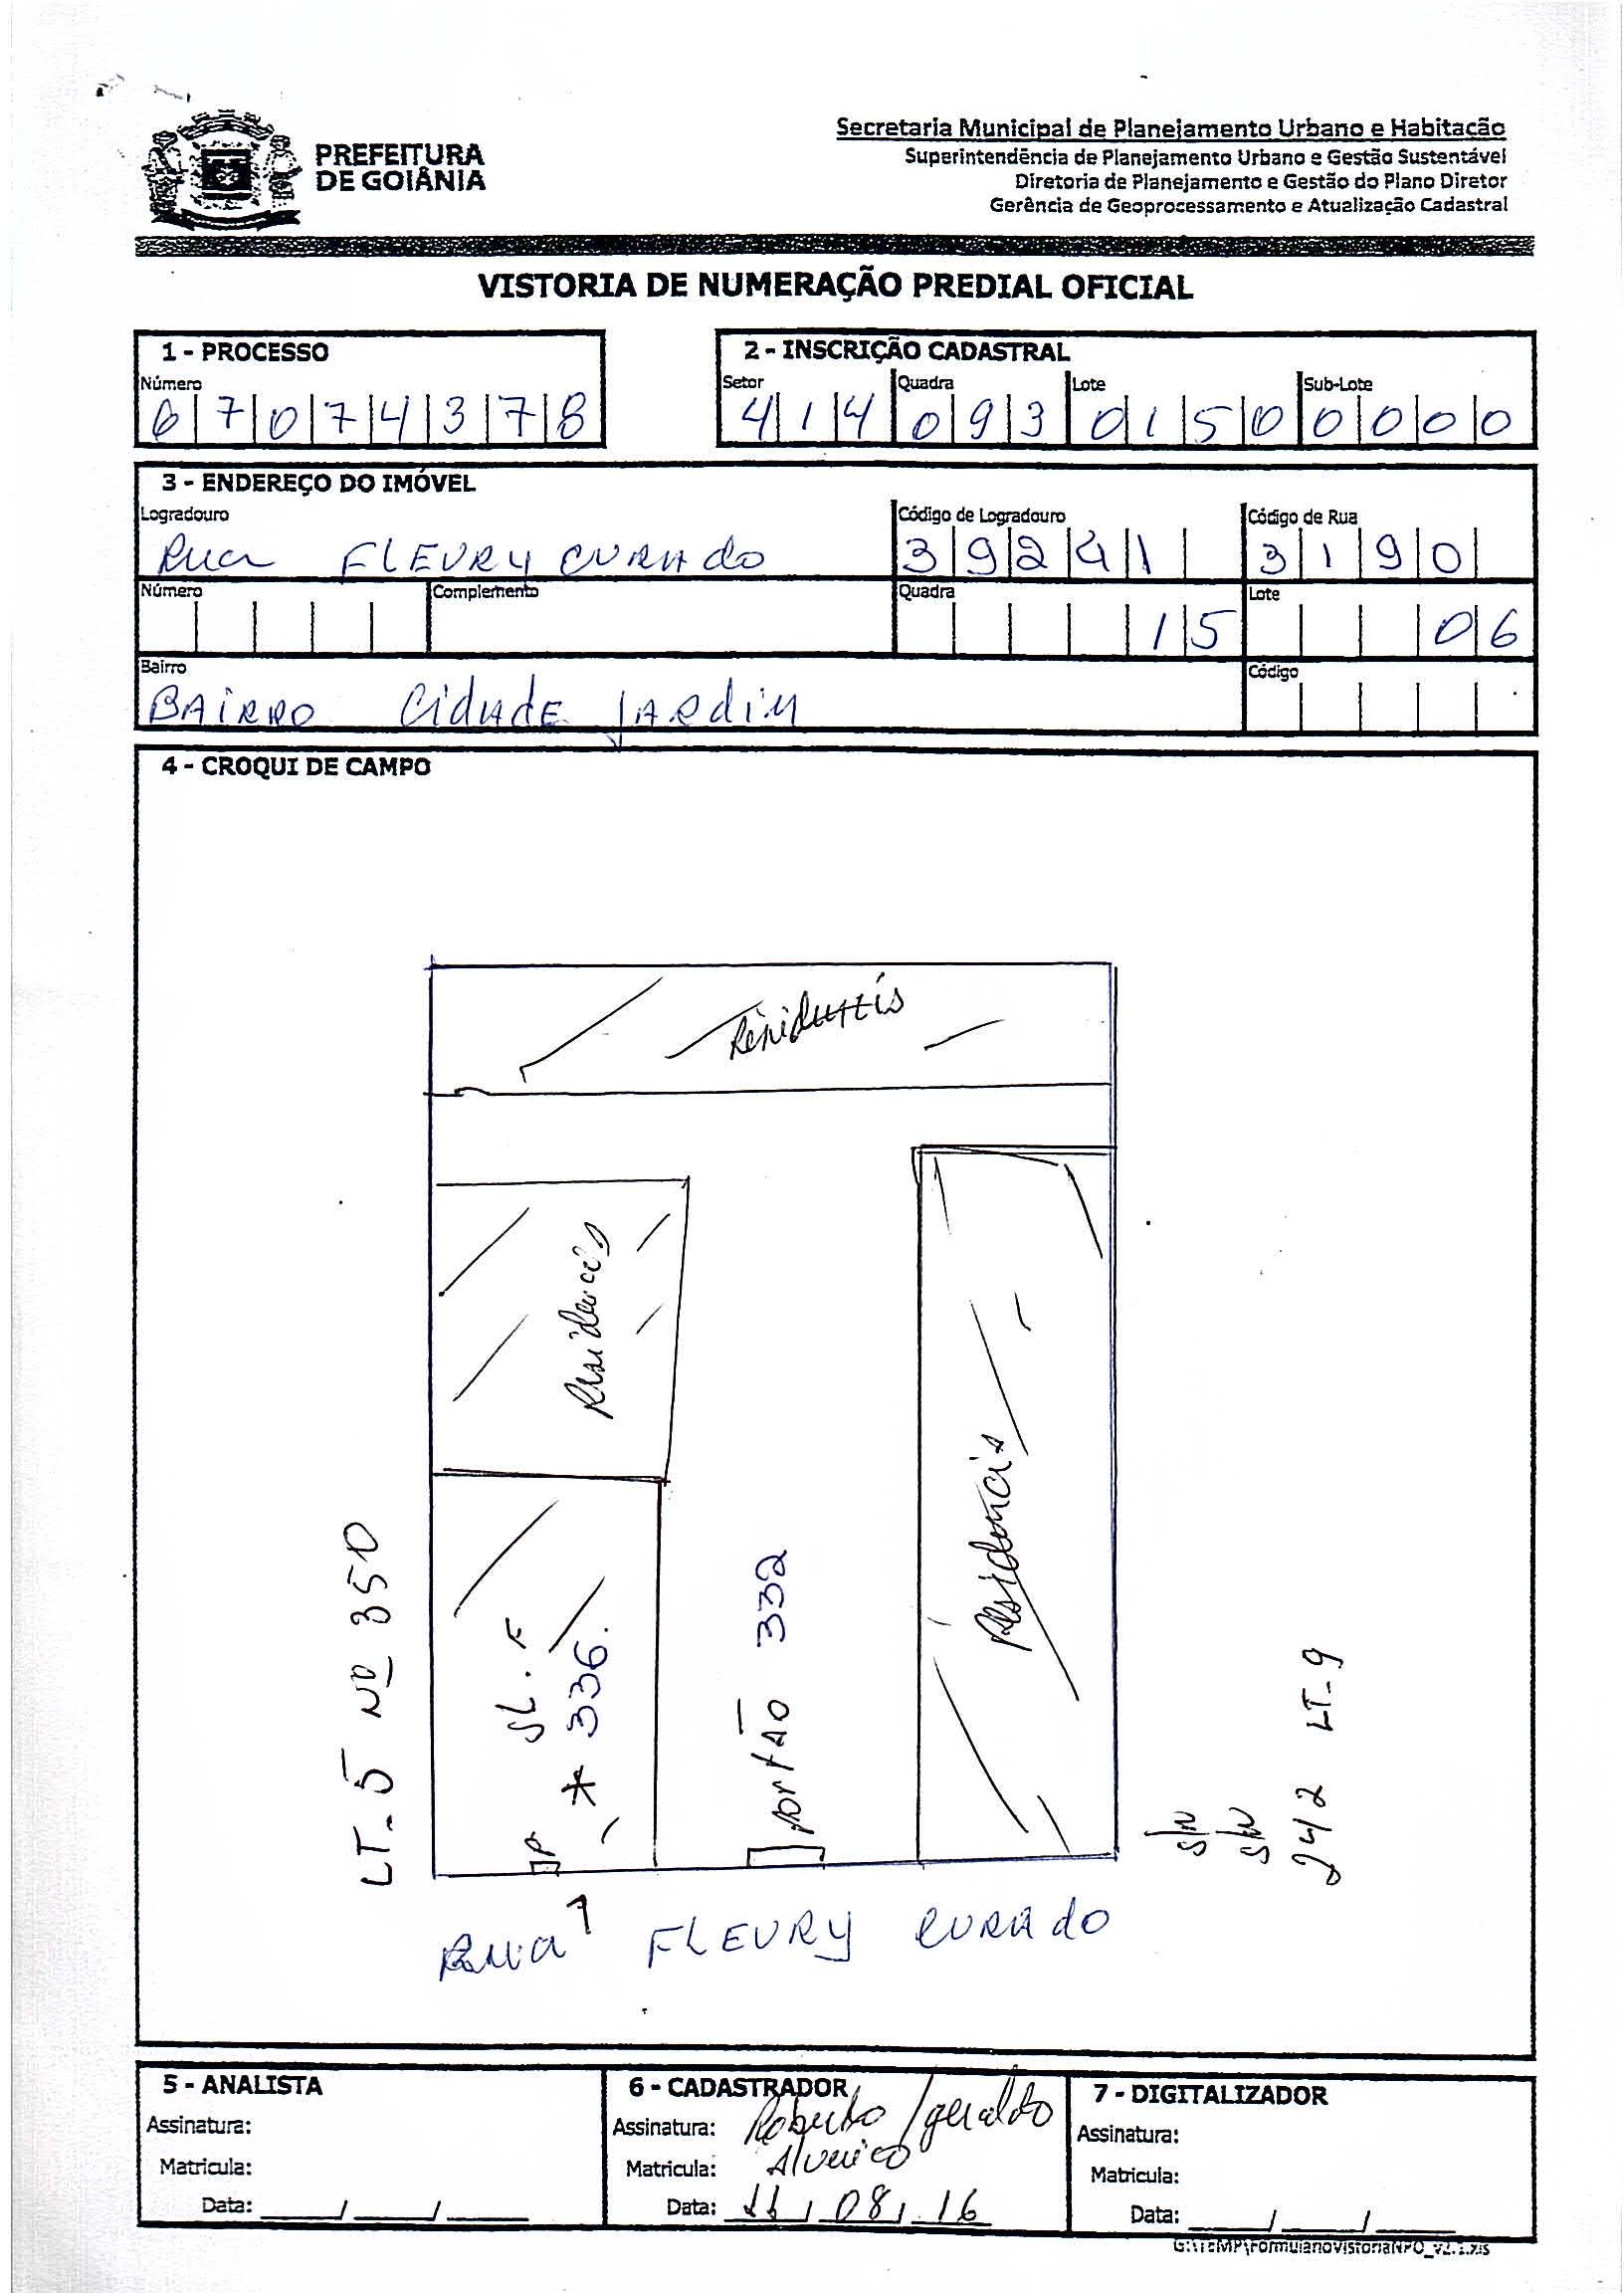 PREFEITURA
DE GOIÂNIA
Secretaria Municipal de Planejamento Urbano e Habitação
Superintendência de Planejamento Urbano e Gestão Sustentável
Diretoria de Planejamento e Gestão do Plano Diretor
Gerência de Geoprocessamento e Atualização Cadastral
VISTORIA DE NUMERAÇÃO PREDIAL OFICIAL
1 - PROCESSO
Número
67074378
2 - INSCRIÇÃO CADASTRAL
Setor Quadra Lote Sub-Lote
414 093 0150 0000
3 - ENDEREÇO DO IMÓVEL
Logradouro Código de Logradouro Código de Rua
Rua FLEURY CURADO 39241 3190
Número Complemento Quadra Lote
15 06
Bairro Código
BAIRRO CIDADE JARDIM
4 - CROQUI DE CAMPO
Residencia
Residencia
SL. F
* 336.
P
portão 332
Residencia
LT_5 Nº 350
S/N
S/N
242 LT_9
Rua FLEURY CURADO
5 - ANALISTA
Assinatura:
Matricula:
Data: ___/___/___
6 - CADASTRADOR
Assinatura: Roberto / geraldo
Matricula:
Data: 11/08/16
7 - DIGITALIZADOR
Assinatura:
Matricula:
Data: ___/___/___
G:\TEMP\FormularioVistoriaNPO_v2.1.xls